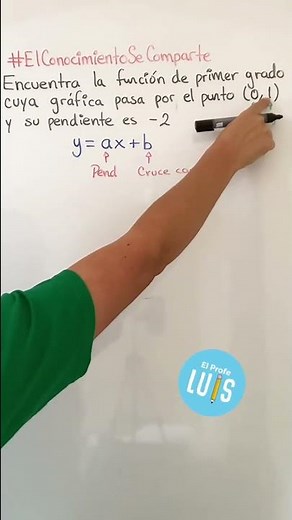 #ElConocimientoSeComparte
Encuentra la función de primer grado
cuya gráfica pasa por el punto (0,1)
y su pendiente es -2
y = ax + b
Pend Cruce
El Profe
LUIS